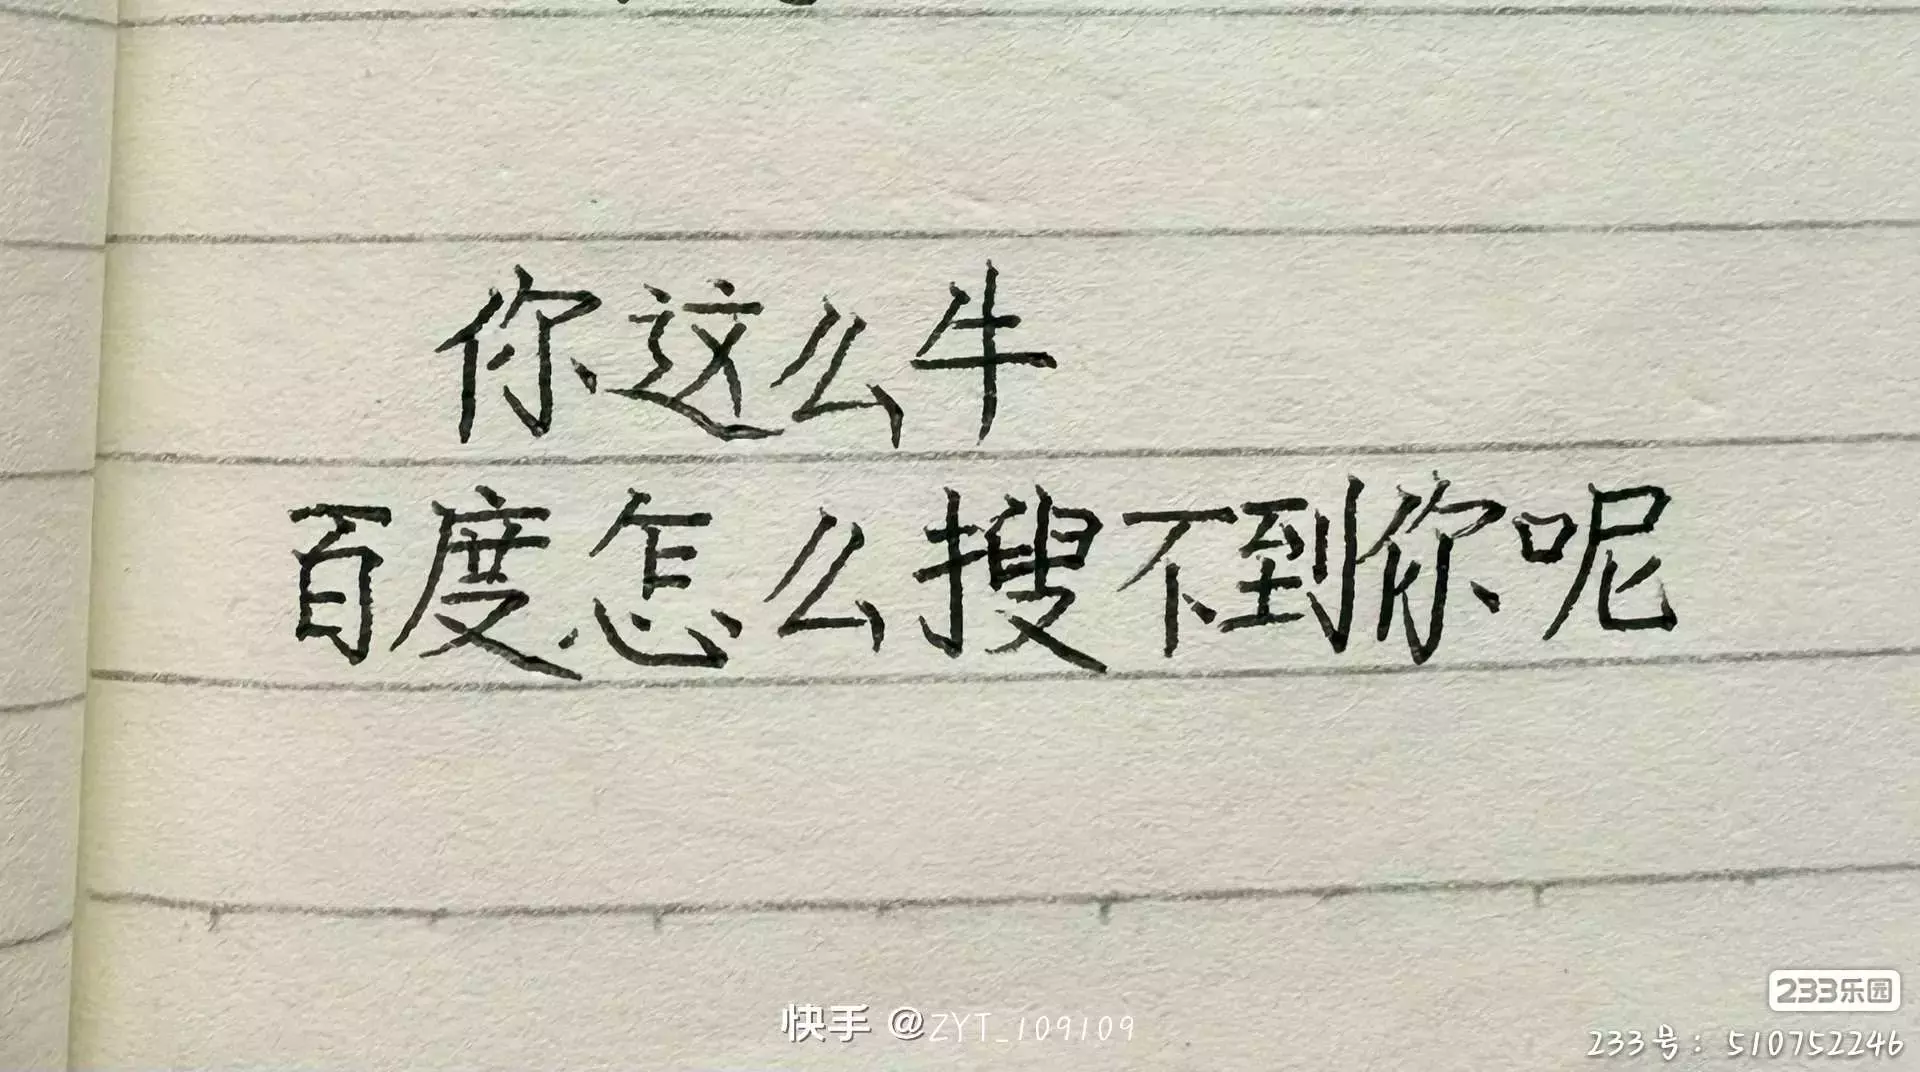 你这么牛
百度怎么搜不到你呢
快手 @ZYT_109109
233乐园
233号：510752246